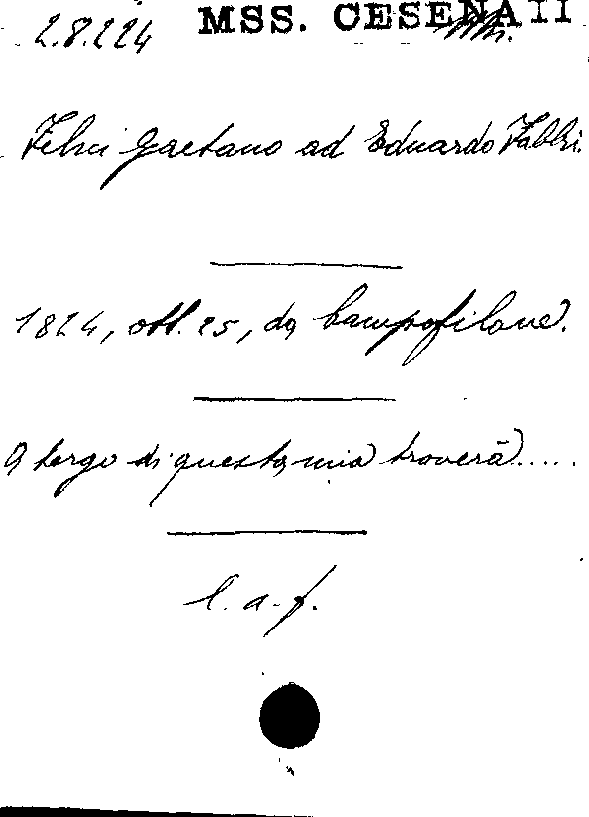 2.8.224 MSS. CESENATI
Felici Gaetano ad Eduardo Fabbri.
1824, ott. 25, da Campofilone.
A tergo di questa mia troverà.....
l. a. f.